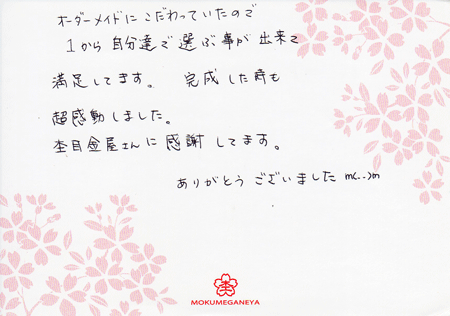 オーダーメイドにこだわっていたので
1から自分達で選ぶ事が出来て
満足してます。 完成した時も
超感動しました。
杢目金屋さんに感謝してます。
ありがとうございました m(..)m
杢
MOKUMEGANEYA